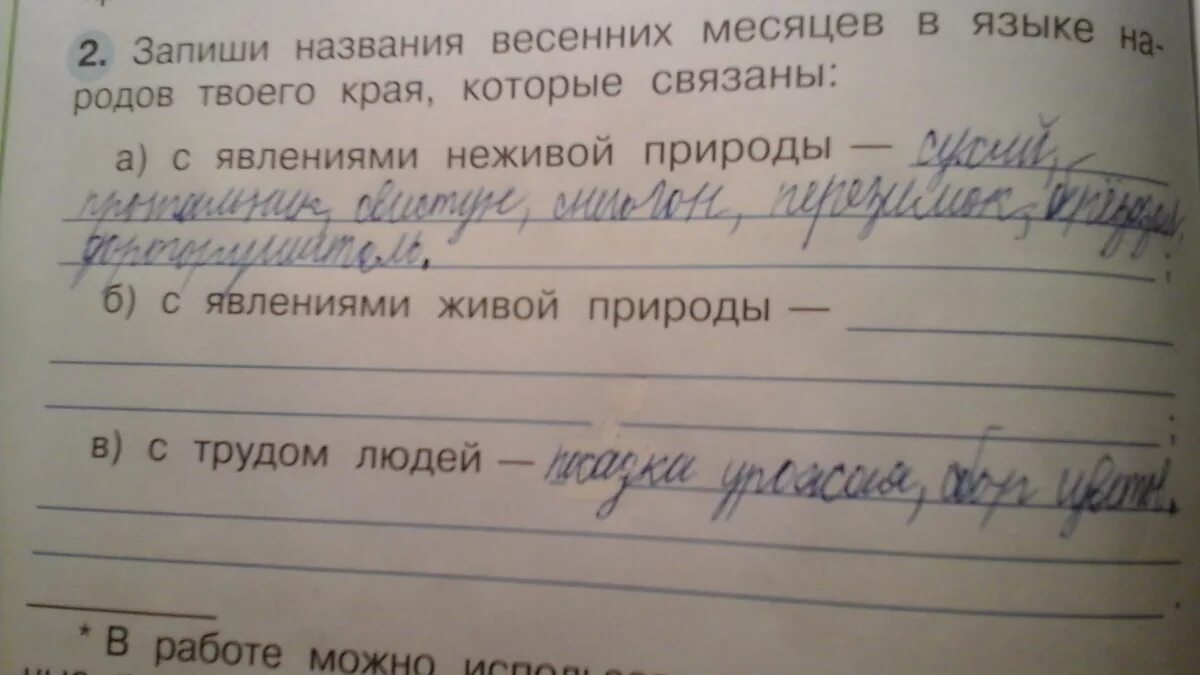 2. Запиши названия весенних месяцев в языке на-
родов твоего края, которые связаны:
а) с явлениями неживой природы — сухий,
протальник, свистун, снегогон, перезимок,
дорогорушитель. ;
б) с явлениями живой природы —
;
в) с трудом людей — посадка урожая, сбор цветы.
.
* В работе можно использо